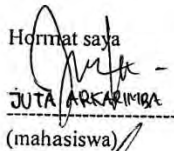 Hormat saya
JUTA ARKARIMBA
(mahasiswa)